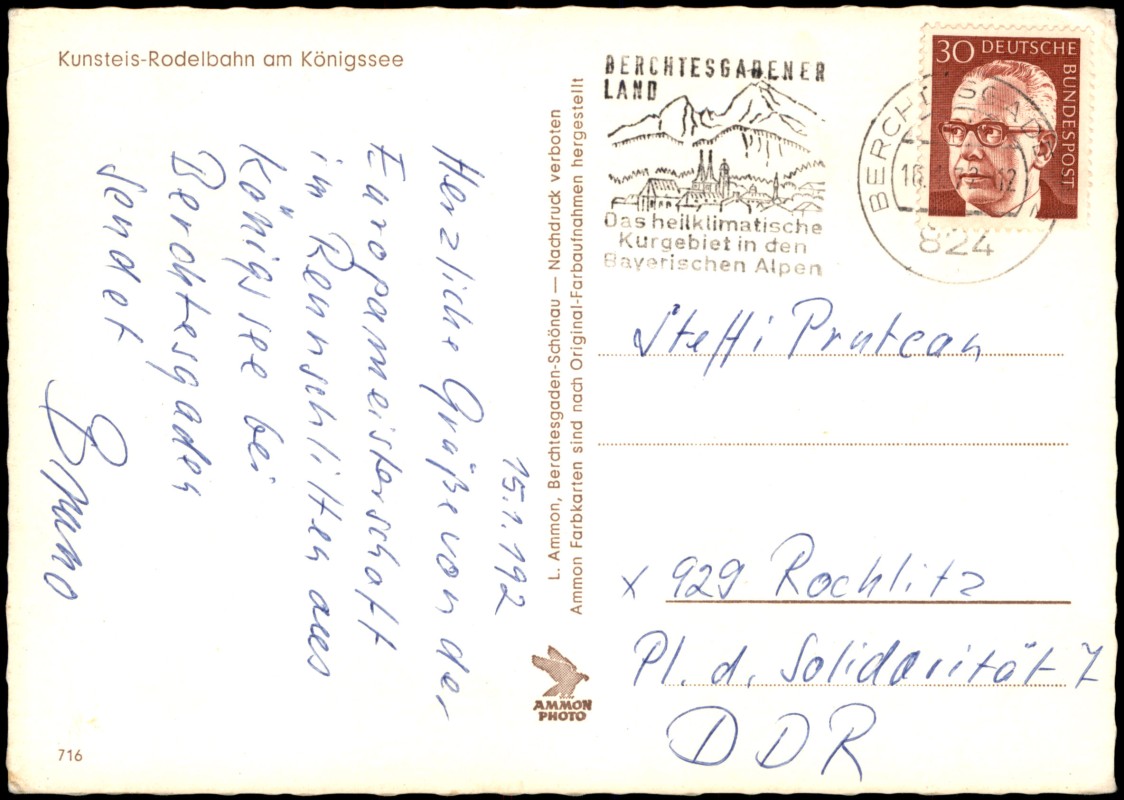 Kunsteis-Rodelbahn am Königssee
15.1.192
Herzliche Grüße von der
Europameisterschaft
im Rennschlitten aus
Königssee bei
Berchtesgaden
sendet
Bruno
716
L. Ammon, Berchtesgaden-Schönau — Nachdruck verboten
Ammon Farbkarten sind nach Original-Farbaufnahmen hergestellt
AMMON
PHOTO
BERCHTESGADENER
LAND
Das heilklimatische
Kurgebiet in den
Bayerischen Alpen
BERCHTESGADEN
824
30 DEUTSCHE
BUNDESPOST
Steffi Prutean
x 929 Rochlitz
Pl. d. Solidarität 7
DDR